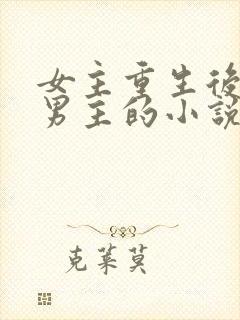 女主重生後
男主的小說
克萊莫